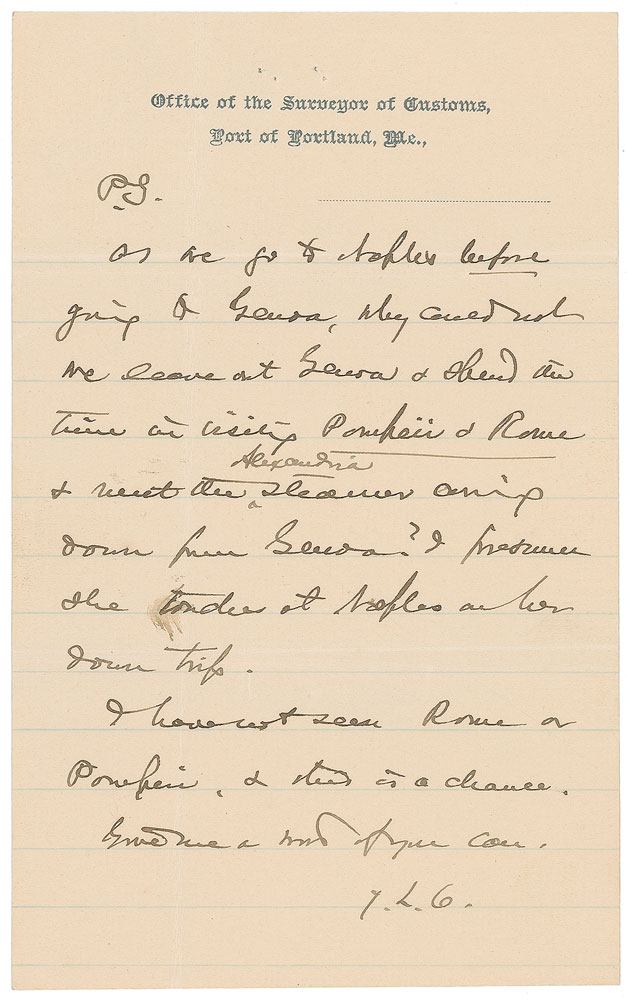 Office of the Surveyor of Customs,
Port of Portland, Me.,
P.S.
As we go to Naples before
going to Genoa, why could not
we leave out Genoa & spend the
time in visiting Pompeii & Rome
Alexandria
& meet the steamer coming
down from Genoa? I presume
she touches at Naples on her
down trip.
I have not seen Rome or
Pompeii, & this is a chance.
Send me a word if you can.
J. L. C.